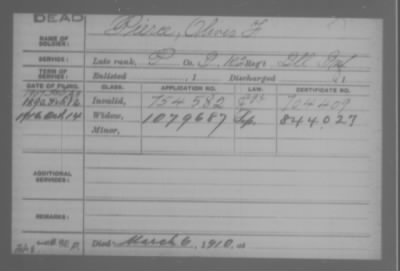 DEAD
NAME OF SOLDIER: Pierce, Oliver F.
SERVICE: Late rank, P Co. Reg't Ill Inf
TERM OF SERVICE: Enlisted , 1 Discharged , 1
DATE OF FILING. CLASS. APPLICATION NO. LAW. CERTIFICATE NO.
Invalid, 754582 704409
Oct 14 Widow, 1079687 844027
Minor,
ADDITIONAL SERVICES:
REMARKS:
Died March 6, 1910, at